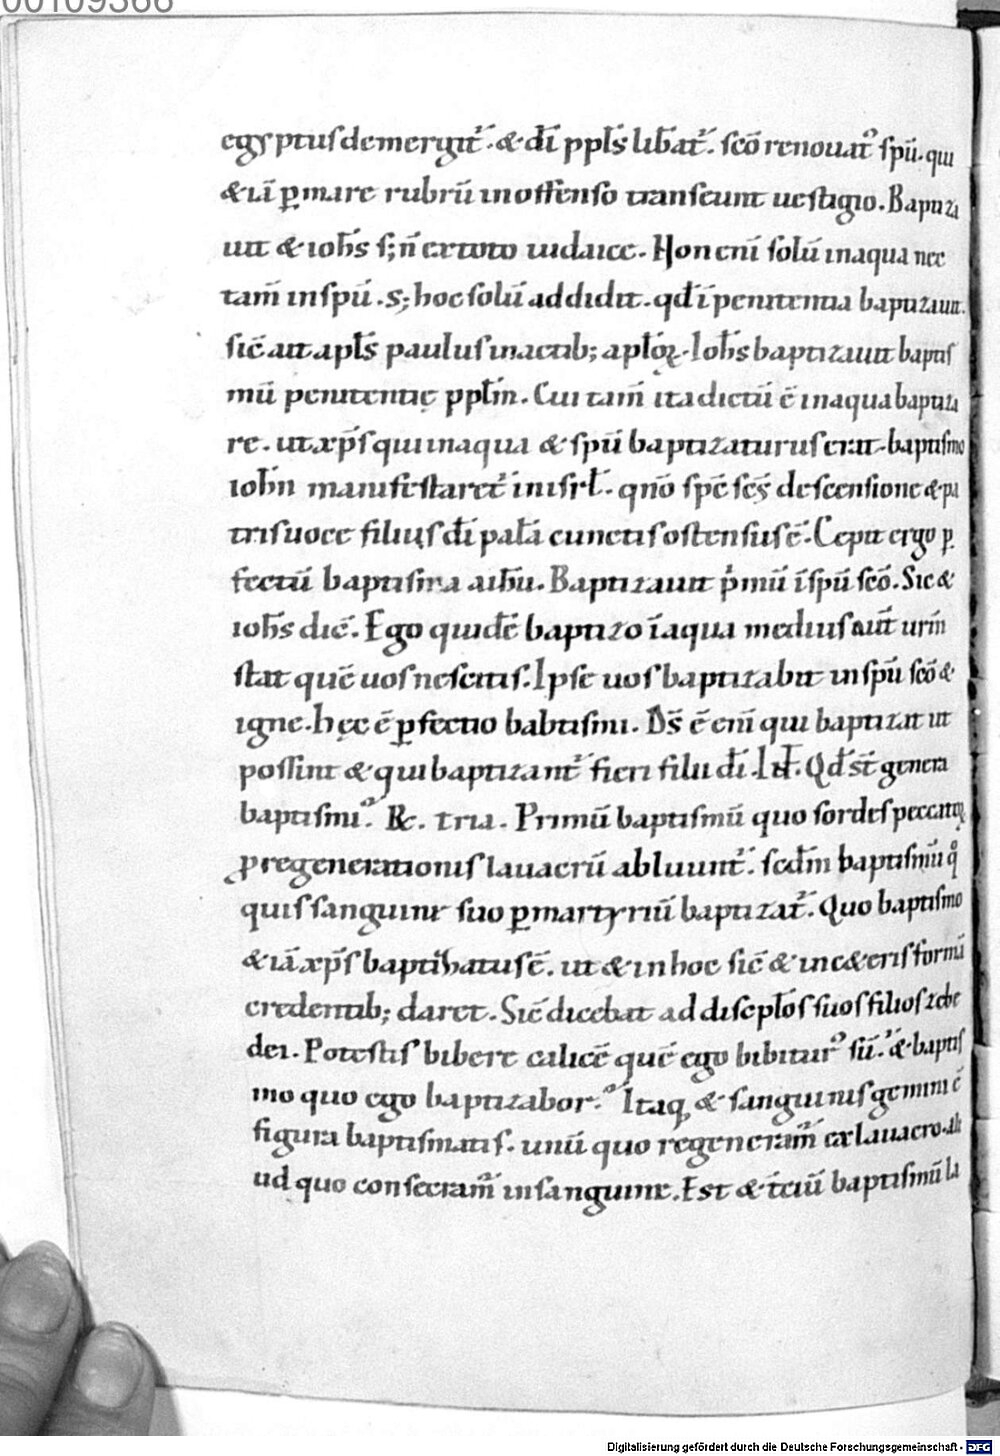 00109366
egyptus demergit᷑. & dī ppl̄s lib̄at᷑. sc̄o renouat᷑ sp̄u. qui
& iā ꝑ mare rubrū inoffenso transeunt uestigio. Baptiza
uit & ioh̄s s; n̄ ex toto iudaice. Non eni̅ solū in aqua nec
tam̄ in sp̄u. S; hoc solū addidit. qd̄ ī penitentia baptizauit.
sic̄ ait apl̄s paulus in actib; apl̄oꝝ. Ioh̄s baptizauit baptis
mū penitentię ppl̄m. Cui tam̄ ita dictū ē in aqua baptiza
re. ut xp̄s qui in aqua & sp̄u baptizaturus erat. baptismo
ioh̄n manifestaret᷑ in isrl̄. qn̄o sp̄c sc̄s descensione & pa
tris uoce filius dī palā cunctis ostensus ē. Cepit ergo ꝑ
fectū baptisma a ih̄u. Baptizauit p̄mū ī sp̄u sc̄o. Sic &
ioh̄s dic̄. Ego quidē baptizo ī aqua medius aut̄ ur̄m
stat quē uos nescitis. Ipse uos baptizabit in sp̄u sc̄o &
igne. hęc ē ꝑfectio babtismi. Ds̄ ē eni̅ qui baptizat ut
possint & qui baptizant᷑ fieri filii dī. Iɫ. Qd̄ st̄ genera
baptismi? R̄. tria. Primū baptismū quo sordes peccatoꝝ
ꝓ regenerationis lauacrū abluunt᷑. sed̄m baptismū qͦ
quis sanguine suo ꝑ martyriū baptizat᷑. Quo baptismo
& iā xp̄s baptizatus ē. ut & in hoc sic̄ & in c&eris formā
credentib; daret. Sic̄ dicebat ad discipl̄os suos filios zebe
dei. Potestis bibere calicē quē ego bibitur᷒ sū. & baptis
mo quo ego baptizabor? Itaq; & sanguinis gemini ē
figura baptismatis. unū quo regeneram᷒ ex lauacro. ali
ud quo consecram᷒ in sanguine. Est & t̄ciū baptismū la
Digitalisierung gefördert durch die Deutsche Forschungsgemeinschaft - DFG